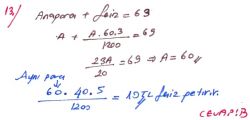 13) Anapara + faiz = 69
A + A.60.3 / 1200 = 69
23A / 20 = 69 ⇒ A = 60 //
Aynı para
60.40.5 / 1200 = 10 TL faiz getirir.
CEVAP:B